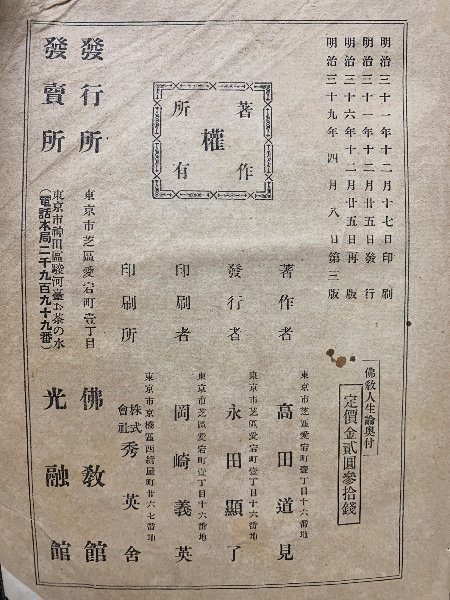 明治三十一年十二月十七日印刷
明治三十一年十二月廿五日發行
明治三十六年十二月廿五日再版
明治三十九年四月八日第三版
佛敎人生論奧付
定價金貳圓參拾錢
著作
權
所有
著作者
東京市芝區愛宕町壹丁目十六番地
高田道見
發行者
東京市芝區愛宕町壹丁目十六番地
永田顯了
印刷者
東京市芝區愛宕町壹丁目十六番地
岡崎義英
印刷所
東京市京橋區西紺屋町廿六七番地
株式會社秀英舍
發行所
東京市芝區愛宕町壹丁目
佛敎館
發賣所
東京市神田區駿河臺お茶の水
(電話本局二千九百九十九番)
光融館